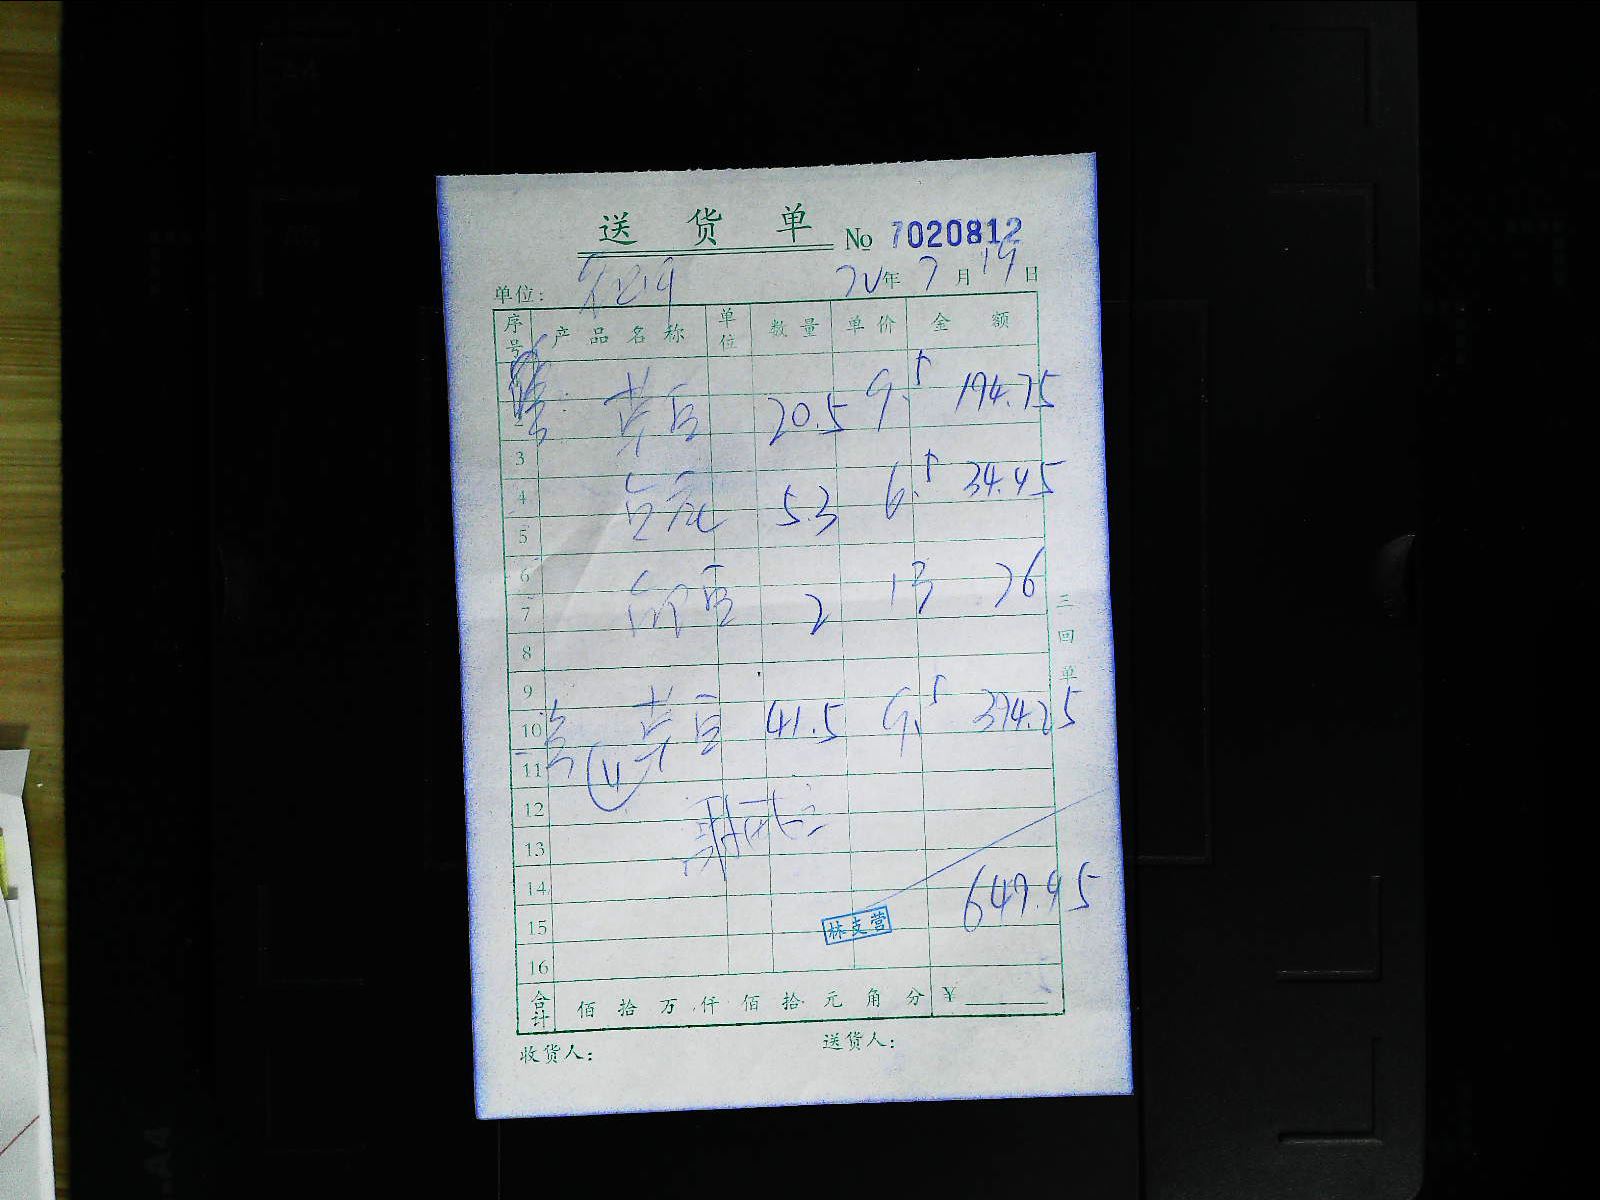 送 货 单 No 7020812
单位: 年 7 月 19 日
序号 产品名称 单位 数量 单价 金额
黄豆 20.5 9.5 194.75
3
4 5.3 6.5 34.45
5
6
7 2 13 26
8
9
10 黄豆 41.5 9.5 394.25
11
12
13
14 649.45
15 林支营
16
合计 佰 拾 万 仟 佰 拾 元 角 分 ¥
收货人: 送货人:
三回单
A4